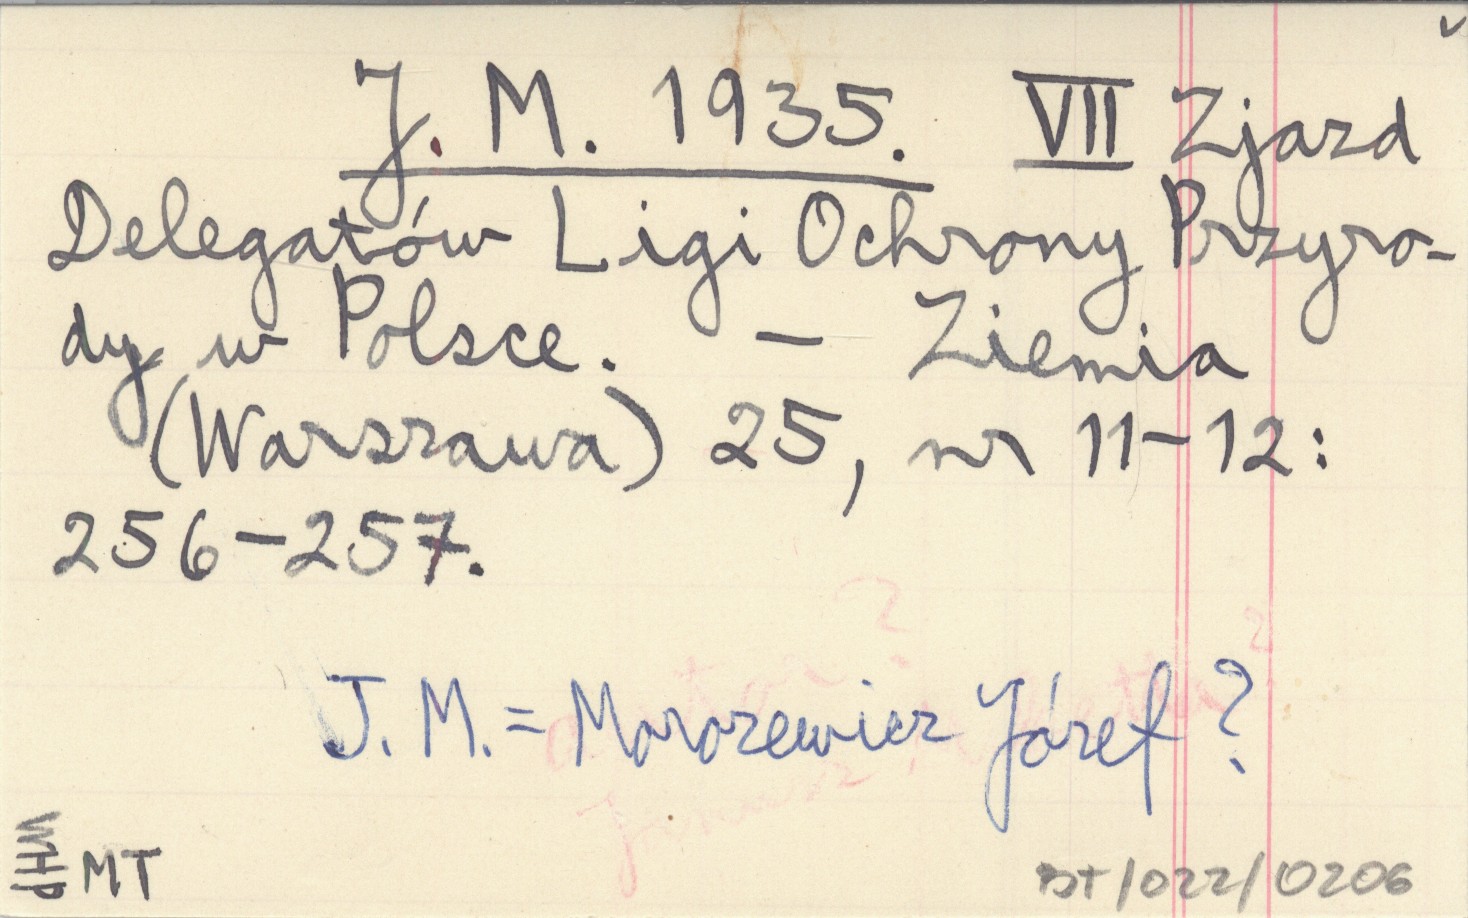 J. M. 1935. VII Zjazd
Delegatów Ligi Ochrony Przyro-
dy w Polsce. – Ziemia
(Warszawa) 25, nr 11–12:
256–257.
J. M. = Morozewicz Józef?
WHP
MT
BT/022/0206